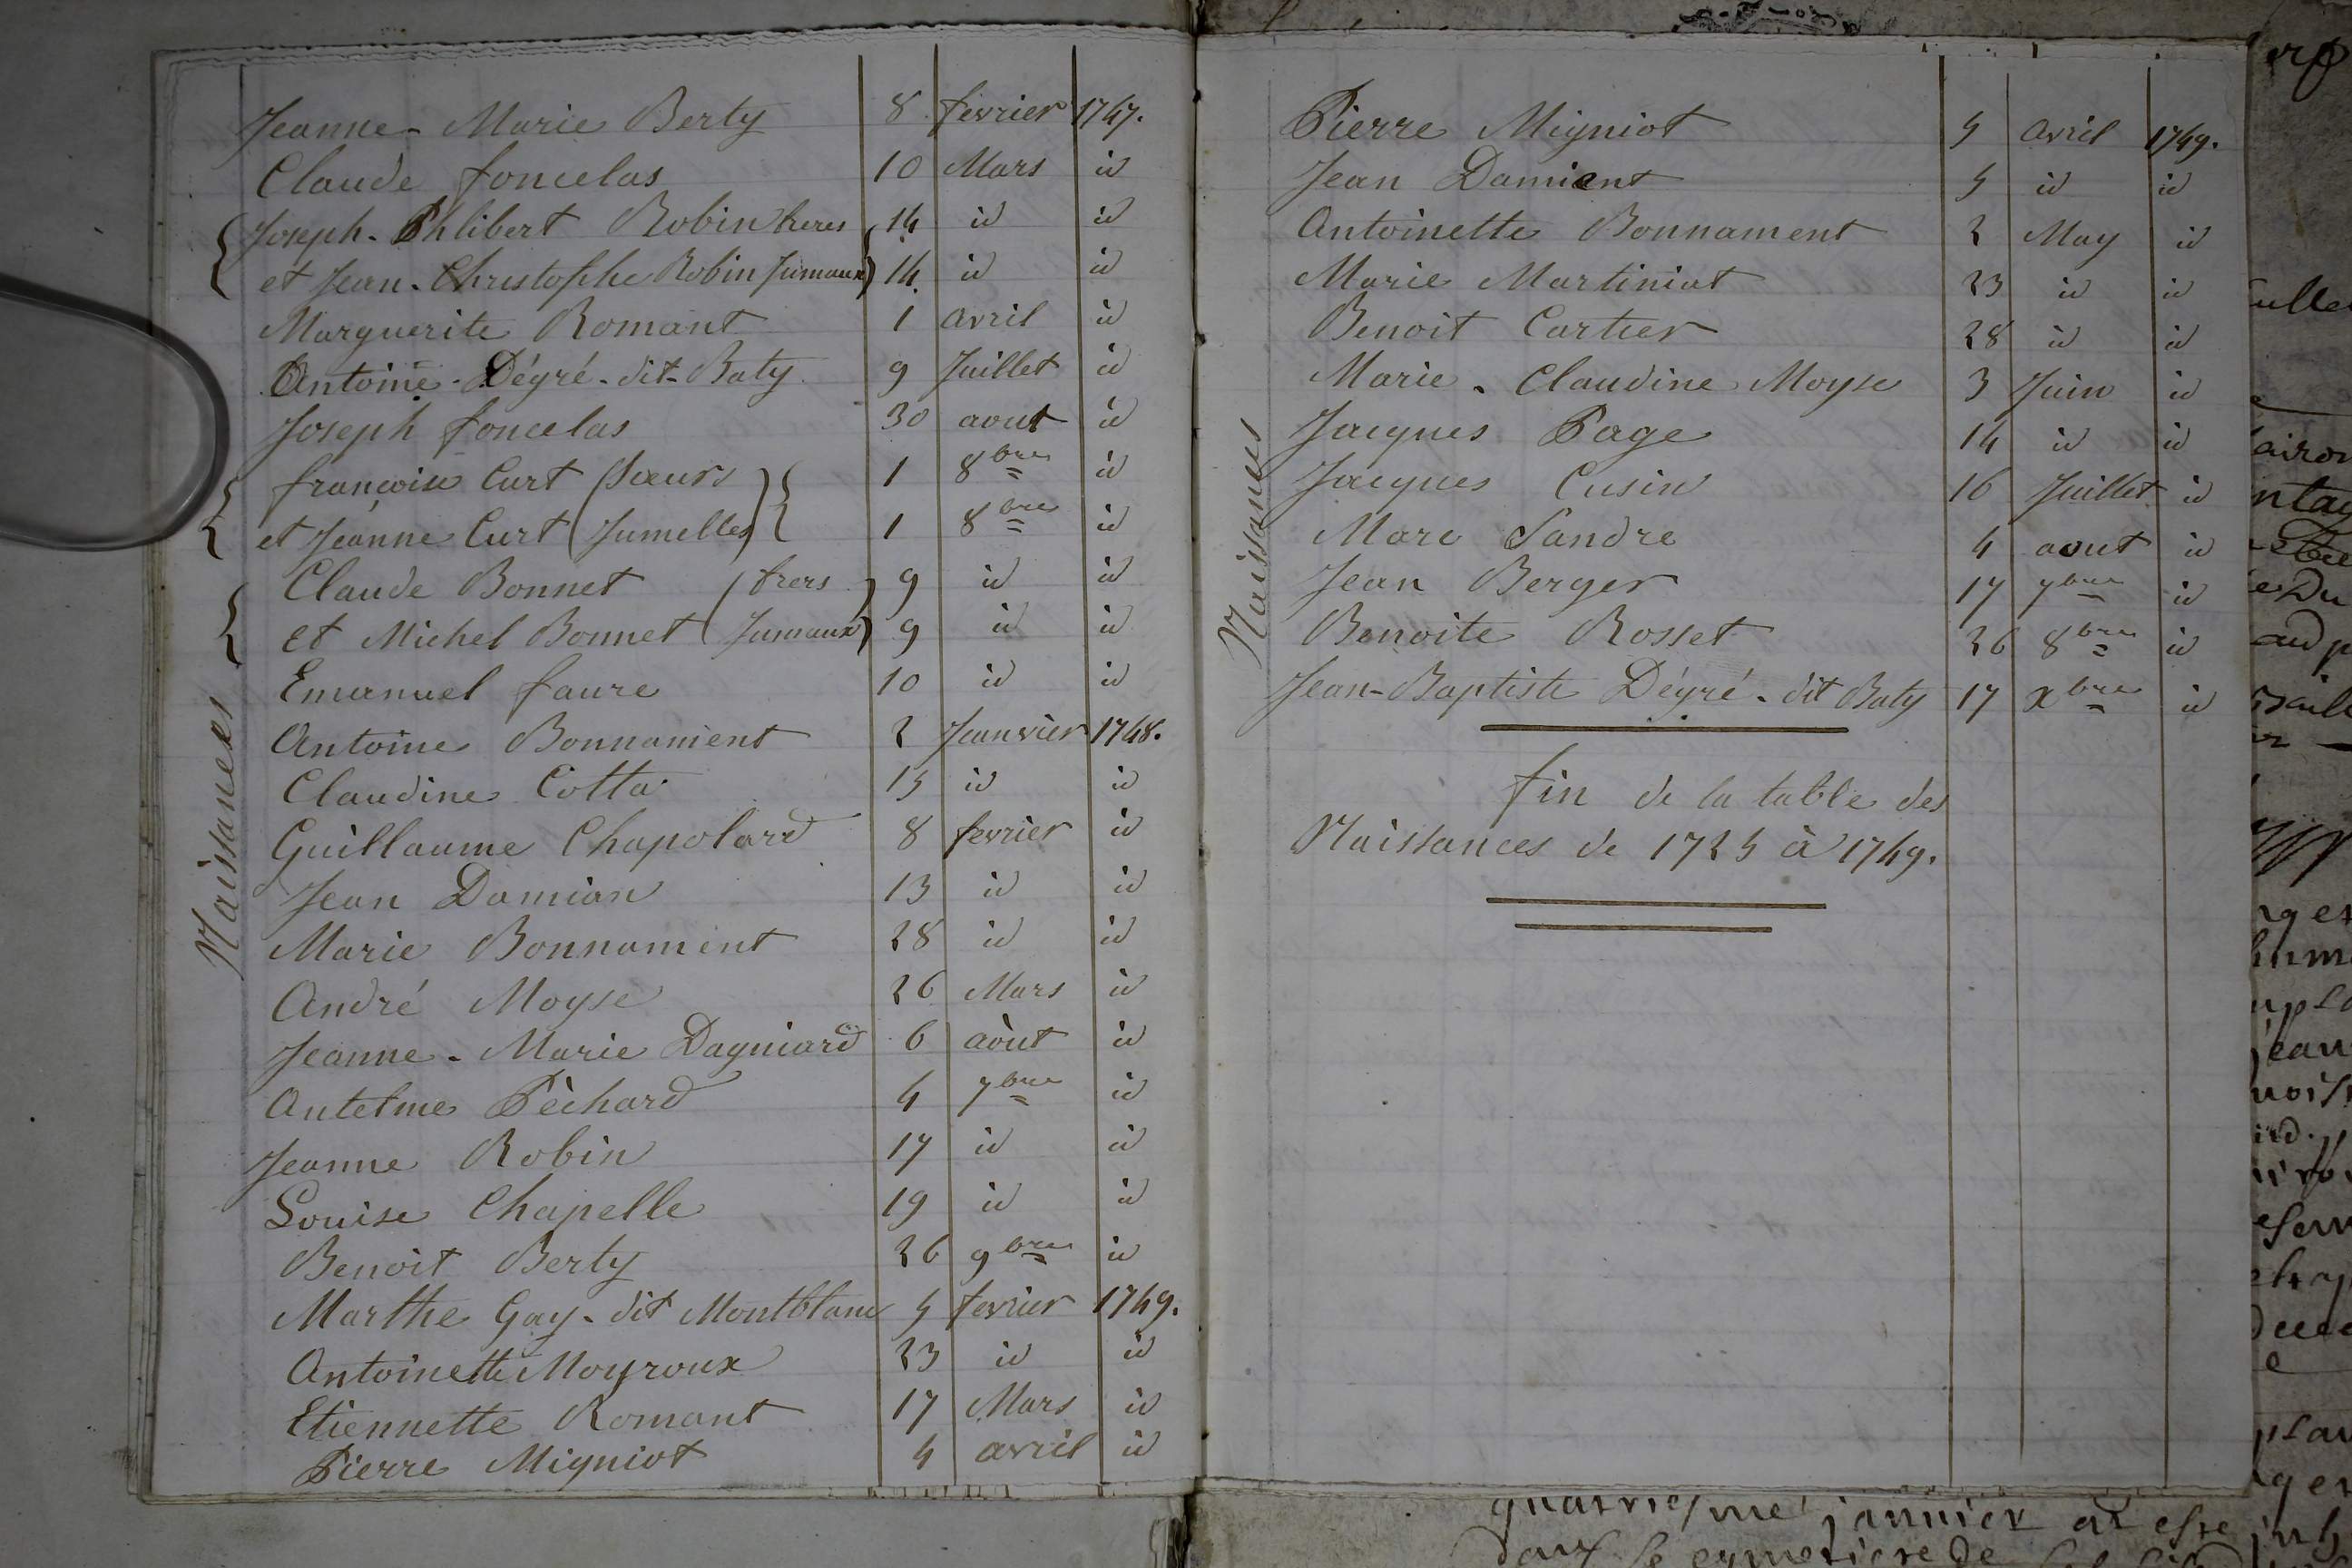 Naissances
Jeanne-Marie Berty 8 fevrier 1747.
Claude foncelas 10 Mars id
Joseph-Phlibert Robin freres 14 id id
et Jean-Christophe Robin Jumaux 14 id id
Marguerite Romant 1 avril id
Antoine-Dégré-dit-Baty 9 Juillet id
Joseph foncelas 30 aout id
françoise Curt (Sœurs) 1 8bre id
et Jeanne Curt (Jumelles) 1 8bre id
Claude Bonnet (frers) 9 id id
et Michel Bonnet (Jumaux) 9 id id
Emanuel faure 10 id id
Antoine Bonnament 2 Jeanvier 1748.
Claudine Cotta 15 id id
Guillaume Chapolard 8 fevrier id
Jean Damian 13 id id
Marie Bonnament 28 id id
André Moyse 26 Mars id
Jeanne-Marie Dagniard 6 aòut id
Antelme Pèchard 4 7bre id
Jeanne Robin 17 id id
Louise Chapelle 19 id id
Benoit Berty 26 9bre id
Marthe Gay-dit Montblanc 5 fevrier 1749.
Antoinette Moyroux 23 id id
Etiennette Romant 17 Mars id
Pierre Migniot 4 avril id
Naissances
Pierre Migniot 5 avril 1749.
Jean Damiant 5 id id
Antoinette Bonnament 2 May id
Marie Martiniat 23 id id
Benoit Cartier 28 id id
Marie-Claudine Moyse 3 Juin id
Jacques Page 14 id id
Jacques Cusin 16 Juillet id
Marc Sandre 4 aout id
Jean Berger 17 7bre id
Benoite Rosset 26 8bre id
Jean-Baptiste Dégré-dit Baty 17 xbre id
fin de la table des
Naissances de 1725 à 1749.